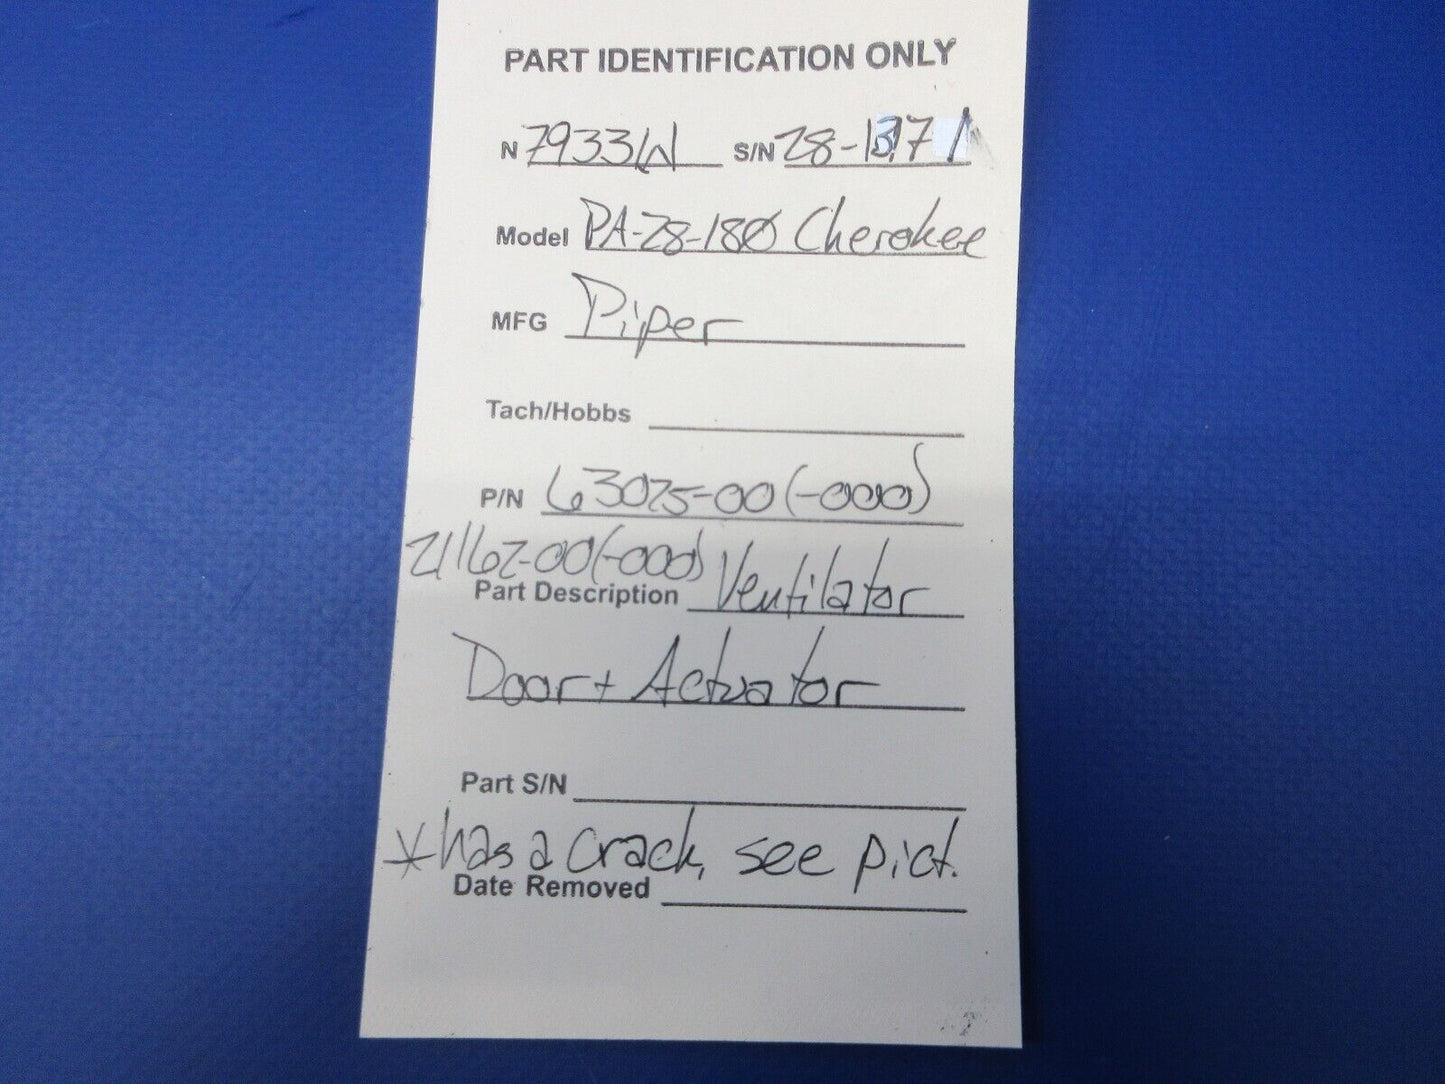 PART IDENTIFICATION ONLY
N 7933W S/N 28-1971
Model PA-28-180 Cherokee
MFG Piper
Tach/Hobbs
P/N 63075-00 (-000)
21162-00(-000)
Part Description Ventilator
Door + Actuator
Part S/N
*has a crack, see pict.
Date Removed